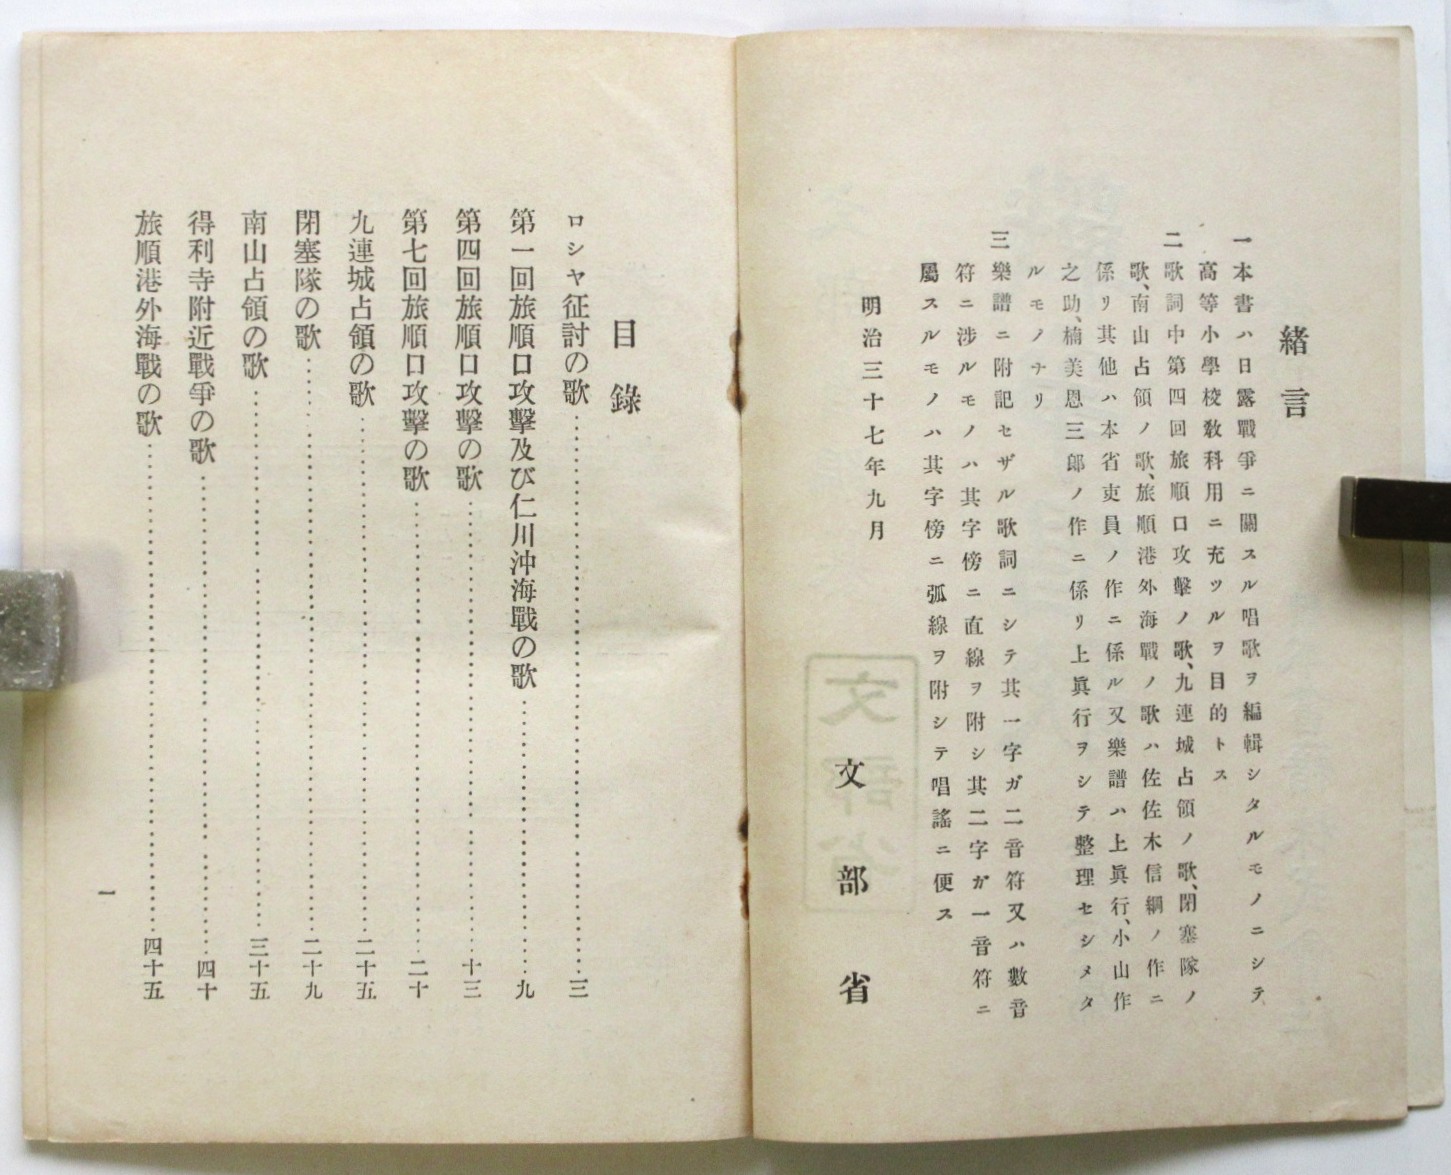 緒言
一本書ハ日露戰爭ニ關スル唱歌ヲ編輯シタルモノニシテ
高等小學校敎科用ニ充ツルヲ目的トス
二歌詞中第四回旅順口攻擊ノ歌、九連城占領ノ歌、閉塞隊ノ
歌、南山占領ノ歌、旅順港外海戰ノ歌ハ佐佐木信綱ノ作ニ
係リ其他ハ本省吏員ノ作ニ係ル又樂譜ハ上眞行、小山作
之助、楠美恩三郎ノ作ニ係リ上眞行ヲシテ整理セシメタ
ルモノナリ
三樂譜ニ附記セザル歌詞ニシテ其一字ガ二音符又ハ數音
符ニ涉ルモノハ其字傍ニ直線ヲ附シ其二字ガ一音符ニ
屬スルモノハ其字傍ニ弧線ヲ附シテ唱謠ニ便ス
明治三十七年九月
文部省
目錄
ロシヤ征討の歌……三
第一回旅順口攻擊及び仁川沖海戰の歌……九
第四回旅順口攻擊の歌……十三
第七回旅順口攻擊の歌……二十
九連城占領の歌……二十五
閉塞隊の歌……二十九
南山占領の歌……三十五
得利寺附近戰爭の歌……四十
旅順港外海戰の歌……四十五
一